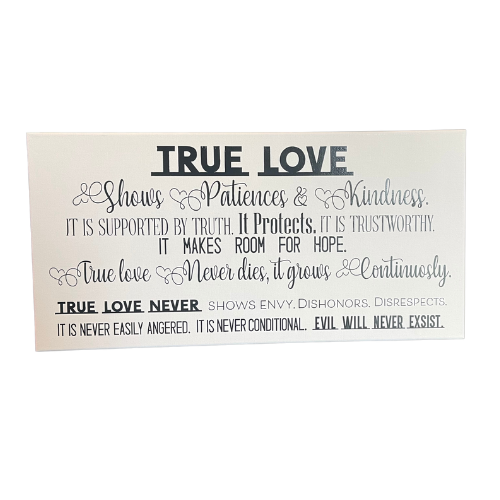 TRUE LOVE
Shows Patiences & Kindness.
IT IS SUPPORTED BY TRUTH. It Protects. IT IS TRUSTWORTHY.
IT MAKES ROOM FOR HOPE.
True love Never dies, it grows Continuosly.
TRUE LOVE NEVER SHOWS ENVY. DISHONORS. DISRESPECTS.
IT IS NEVER EASILY ANGERED. IT IS NEVER CONDITIONAL. EVIL WILL NEVER EXSIST.